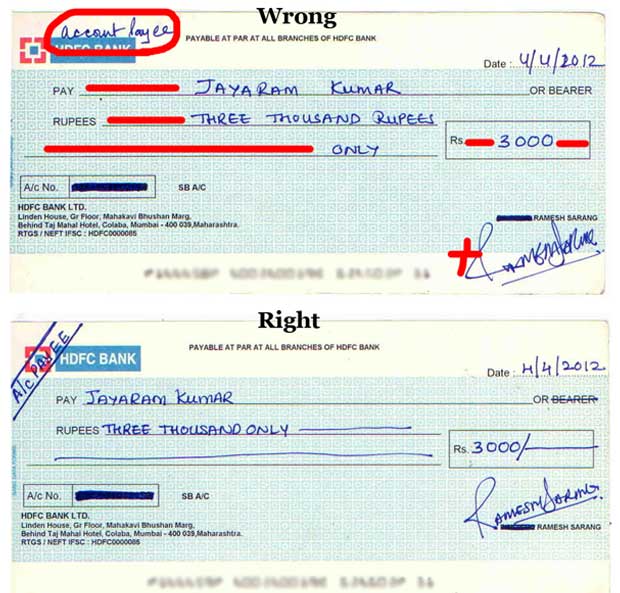 Wrong
account Payee
HDFC BANK
PAYABLE AT PAR AT ALL BRANCHES OF HDFC BANK
Date : 4/4/2012
PAY JAYARAM KUMAR OR BEARER
RUPEES THREE THOUSAND RUPEES
Rs. 3000
ONLY
A/c No. SB A/C
HDFC BANK LTD.
Linden House, Gr Floor, Mahakavi Bhushan Marg,
Behind Taj Mahal Hotel, Colaba, Mumbai - 400 039,Maharashtra.
RTGS / NEFT IFSC : HDFC0000085
RAMESH SARANG
Right
A/c PAYEE
HDFC BANK
PAYABLE AT PAR AT ALL BRANCHES OF HDFC BANK
Date : 4/4/2012
PAY JAYARAM KUMAR OR BEARER
RUPEES THREE THOUSAND ONLY
Rs. 3000/-
A/c No. SB A/C
HDFC BANK LTD.
Linden House, Gr Floor, Mahakavi Bhushan Marg,
Behind Taj Mahal Hotel, Colaba, Mumbai - 400 039,Maharashtra.
RTGS / NEFT IFSC : HDFC0000085
RAMESH SARANG